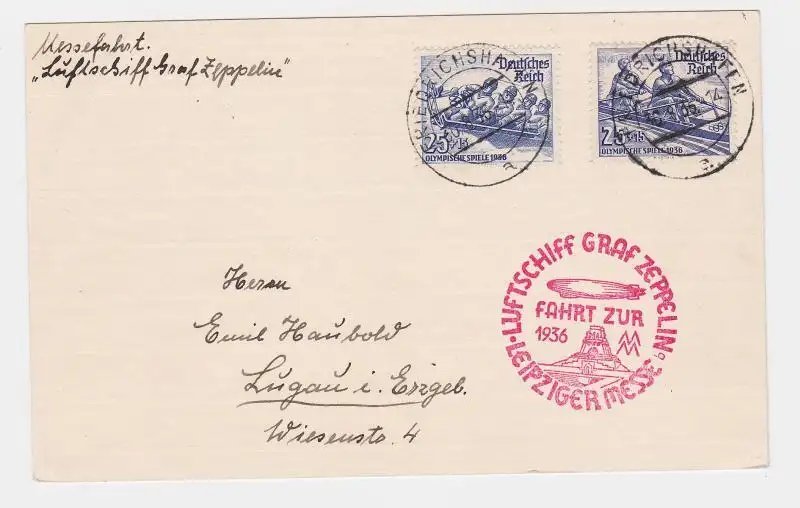 Messefahrt.
„Luftschiff Graf Zeppelin"
FRIEDRICHSHAFEN
Deutsches
Reich
25+15
OLYMPISCHE SPIELE 1936
FRIEDRICHSHAFEN
Deutsches
Reich
25+15
OLYMPISCHE SPIELE 1936
Herrn
Emil Haubold
Lugau i. Erzgeb.
Wiesenstr. 4
LUFTSCHIFF GRAF ZEPPELIN
FAHRT ZUR
1936
MM
LEIPZIGER MESSE